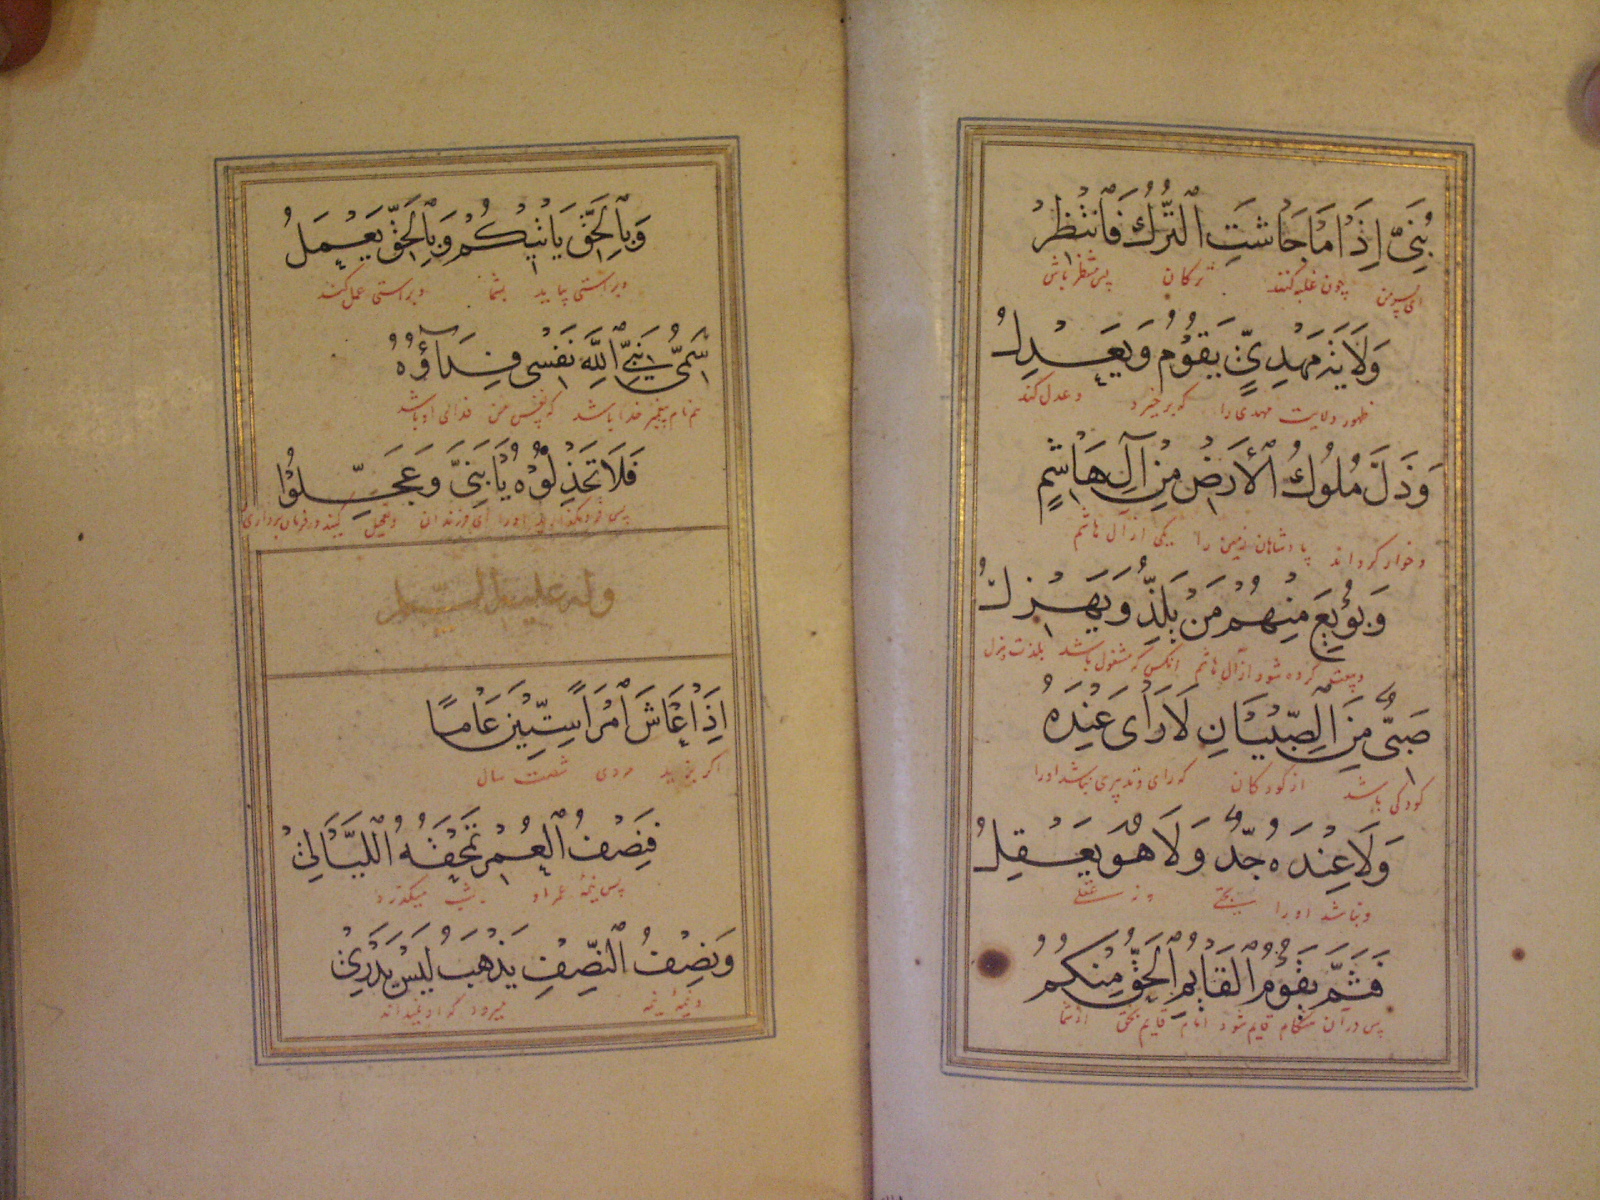 بُنَيَّ اِذَا مَا جَاشَتِ التُّرْكُ فَانْتَظِرْ
ای پسر من چون غلبه کنند ترکان پس منتظر باشی
وَلَايَةَ مَهْدِيٍّ يَقُوْمُ وَيَعْدِلُ
ظهور ولایت مهدی را که برخیزد و عدل کند
وَذَلَّ مُلُوكُ الْأَرْضِ مِنْ آلِ هَاشِمٍ
و خوار گرداند پادشاهان زمین را یکی از آل هاشم
وَبُوْيِعَ مِنْهُمْ مَنْ يَلَذُّ وَيَهْزِلُ
و بیعت کرده شود از آل هاشم آنکس که مشغول باشد بلذت و هزل
صَبِيٌّ مِنَ الصِّبْيَانِ لَا رَاْىَ عِنْدَهُ
کودکی باشد از کودکان که رای و تدبیری نباشد او را
وَلَا عِنْدَهُ جِدٌّ وَلَا هُوَ يَعْقِلُ
و نباشد او را و نه عقلی
فَثَمَّ يَقُوْمُ الْقَائِمُ الْحَقُّ مِنْكُمُ
پس در آن هنگام قایم شود امام قایم بحق از شما
وَبِالْحَقِّ يَاتِيْكُمْ وَبِالْحَقِّ يَعْمَلُ
و براستی بیاید بشما و براستی عمل کند
سَمِيُّ نَبِيِّ اللّٰهِ نَفْسِى فِدَاؤُهُ
هم نام پیغمبر خدا باشد که نفس من فدای او باشد
فَلَا تَخْذُلُوْهُ يَا بَنِيَّ وَعَجِّلُوْا
پس فرومگذارید او را ای فرزندان و تعجیل کنید در فرمان برداری
وله عليه السلام
اِذَا عَاشَ امْرَأً سِتِّيْنَ عَامًا
اگر بزید مردی شصت سال
فَنِصْفُ الْعُمْرِ تَمْحَقُهُ اللَّيَالِيْ
پس نیمهٔ عمر او شب میگذرد
وَنِصْفُ النِّصْفِ يَذْهَبُ لَيْسَ يَدْرِيْ
و نیمهٔ نیمه میرود که او نمیداند